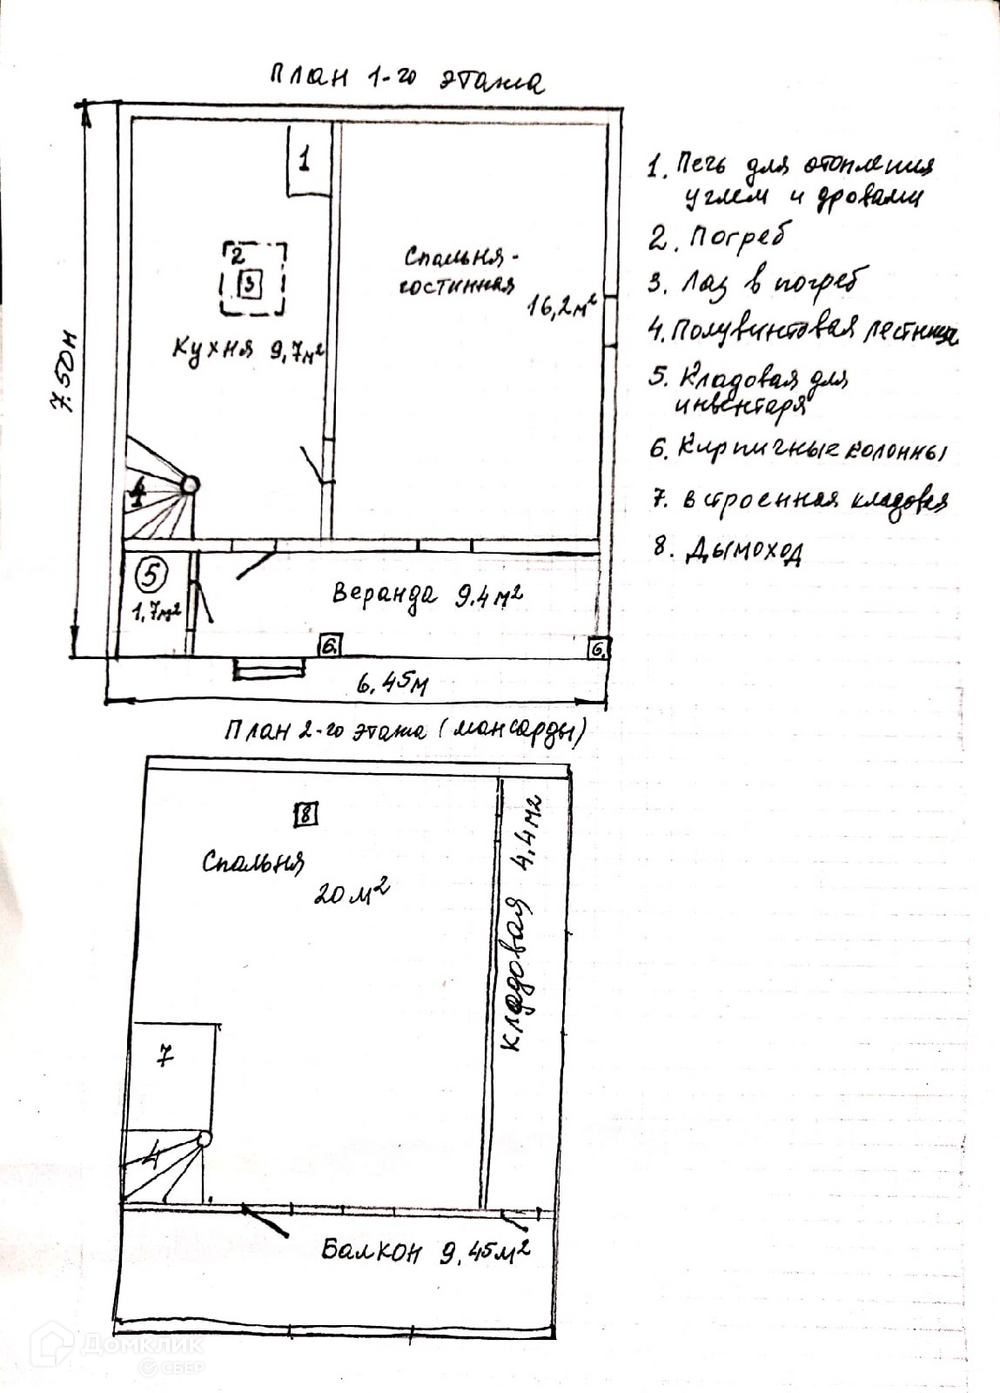 План 1-го этажа
1
1. Печь для отопления
углем и дровами
2
2. Погреб
3
Спальня-
гостинная
16,2м²
3. Лаз в погреб
Кухня 9,7м²
4. Полувинтовая лестница
7.50м
5. Кладовая для
инвентаря
6. Кирпичные колонны
4
7. встроенная кладовая
8. Дымоход
5
1,7м²
Веранда 9.4м²
6.
6.
6,45м
План 2-го этажа (мансарды)
8
Спальня
20м²
кладовая 4,4м2
7
4
Балкон 9,45м²
Домклик
СБЕР